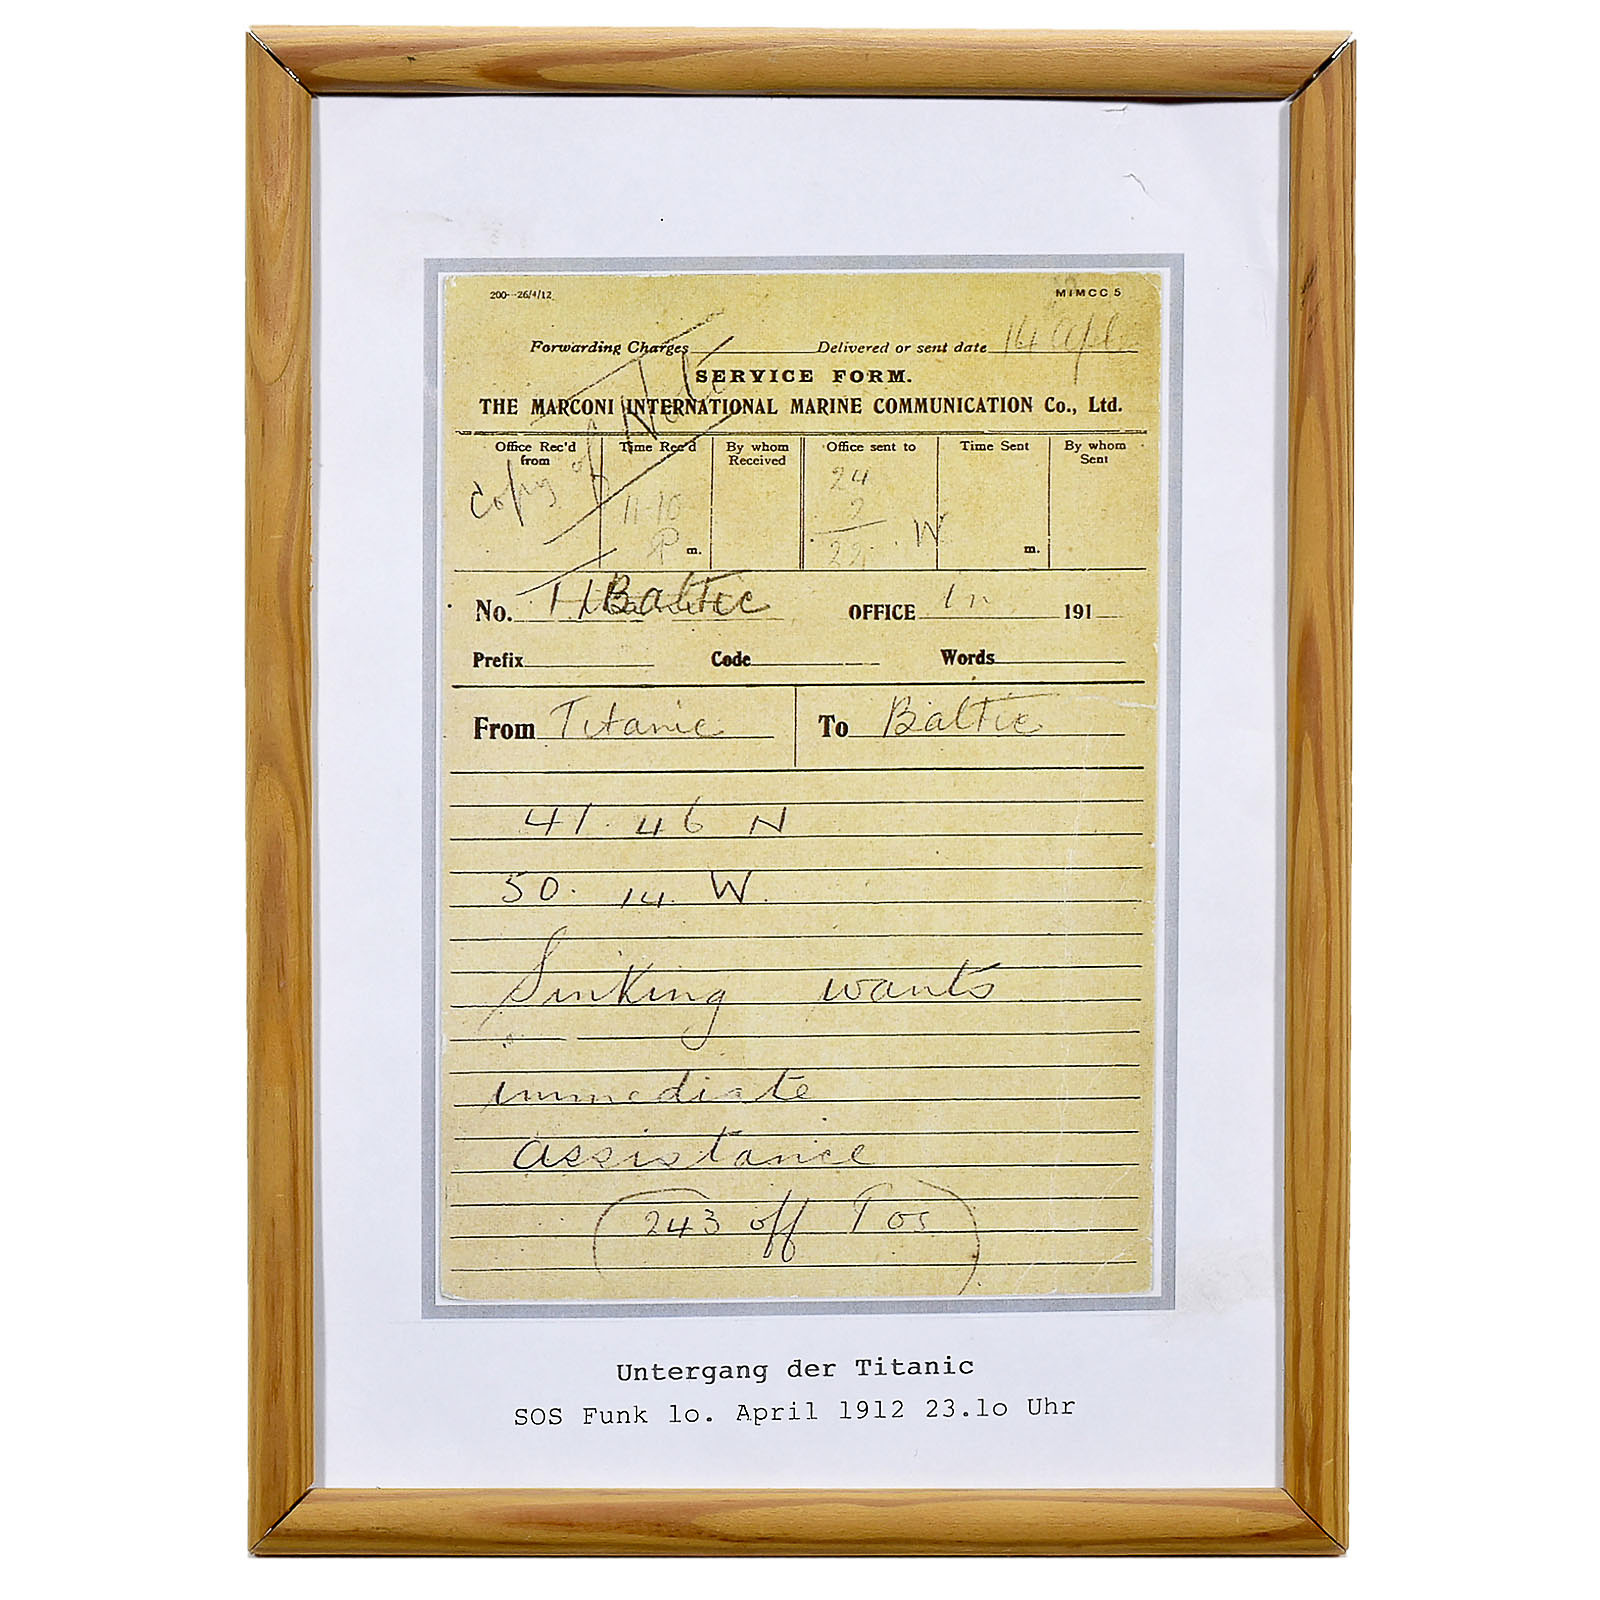 200--26/4/12 MIMCC 5
Forwarding Charges Delivered or sent date 14 Apl
SERVICE FORM.
THE MARCONI INTERNATIONAL MARINE COMMUNICATION Co., Ltd.
Office Rec'd from Time Rec'd By whom Received Office sent to Time Sent By whom Sent
Copy of
11-10 P m.
24
2
22 W m.
No. Baltic OFFICE 191
Prefix Code Words
From Titanic To Baltic
41. 46 N
50. 14. W.
Sinking wants
immediate
assistance
243 off
Untergang der Titanic
SOS Funk lo. April 1912 23.lo Uhr